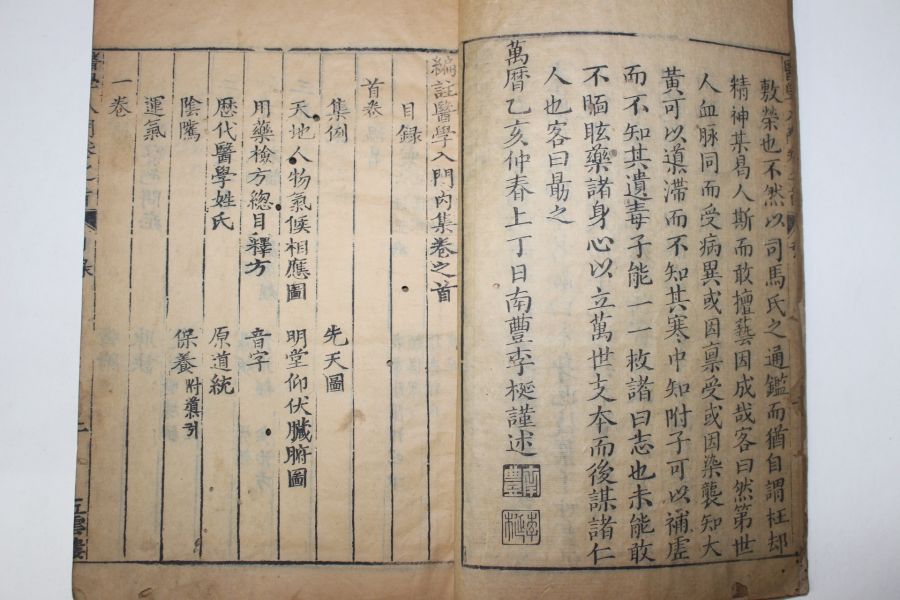 敷榮也不然以司馬氏之通鑑而猶自謂枉却
精神某曷人斯而敢擅藝因成哉客曰然第世
人血脉同而受病異或因禀受或因染襲知大
黃可以導滯而不知其寒中知附子可以補虛
而不知其遺毒子能一一救諸曰志也未能敢
不瞑眩藥諸身心以立萬世之本而後謀諸仁
人也客曰勗之
萬曆乙亥仲春上丁日南豐李梴謹述
南豐
李梴
編註醫學入門內集卷之首
目録
首卷
集例 先天圖
天地人物氣候相應圖 明堂仰伏臟腑圖
用藥檢方總目釋方 音字
歷代醫學姓氏 原道統
陰隲 保養附導引
運氣
一卷